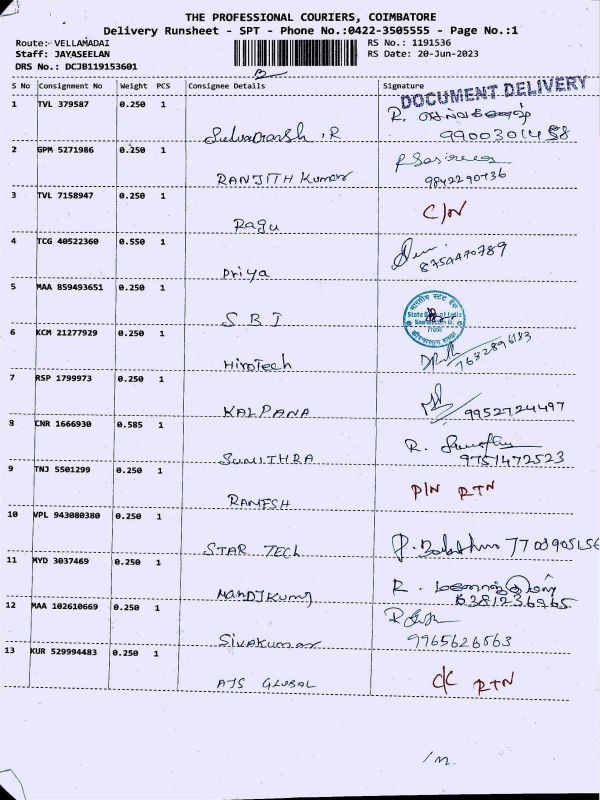 THE PROFESSIONAL COURIERS, COIMBATORE
Delivery Runsheet - SPT - Phone No.:0422-3505555 - Page No.:1
Route: VELLAMADAI
RS No.: 1191536
Staff: JAYASEELAN
RS Date: 20-Jun-2023
DRS No.: DCJB119153601
S No Consignment No Weight PCS Consignee Details Signature
DOCUMENT DELIVERY
1 TVL 379587 0.250 1
R. செல்வகணேஷ்
Selvaganesh .R 9900301458
2 GPM 5271986 0.250 1
RANJITH Kumar 9842290736
3 TVL 7158947 0.250 1
C/N
Ragu
4 TCG 40522360 0.550 1
Priya 8754470789
5 MAA 859493651 0.250 1
भारतीय स्टेट बैंक
State Bank of India
SBI
6 KCM 21277929 0.250 1
HiroTech 7682896183
7 RSP 1799973 0.250 1
KALPANA 9952724497
8 CNR 1666930 0.585 1
R.
SUMITHRA 9751472523
9 TNJ 5501299 0.250 1
P/N RTN
RAMESH
10 VPL 943080380 0.250 1
STAR TECH 7708905156
11 MYD 3037469 0.250 1
R.
NANDJKumj 6381236965
12 MAA 102610669 0.250 1
Sivakumar 9965626563
13 KUR 529994483 0.250 1
C/C RTN
AJS GLOBAL